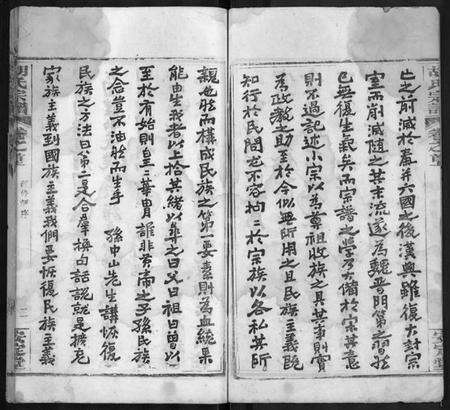 亡之削減於嬴并六國之後漢興雖復大封宗
室而削減隨之其末流遂為魏晉門第
已無復生氣矣而宗譜之學乃備於宗其意
則不過記述小宗以為尊祖收族之具其事則實
為政教之助至於今似無所用之且民族主義既
知行於民間尤不容拘拘於宗族以各私其所
親也然而構成民族之第一要素則為血統果
能由生我者以上推其緒以尋之曰父曰祖曰曾以
至於有始則皇皇華胄誰非黃帝之子孫民族
之合豈不油然而生乎 孫中山先生講恢復
民族之方法曰第二是合羣換句話說就是擴充
家族主義到國族主義我們要恢復民族主義